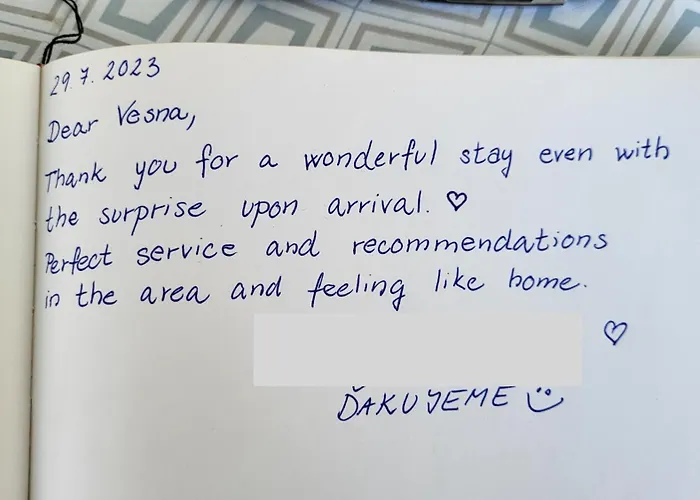 29.7.2023
Dear Vesna,
Thank you for a wonderful stay even with
the surprise upon arrival. ♡
Perfect service and recommendations
in the area and feeling like home.
♡
ĎAKUJEME ü